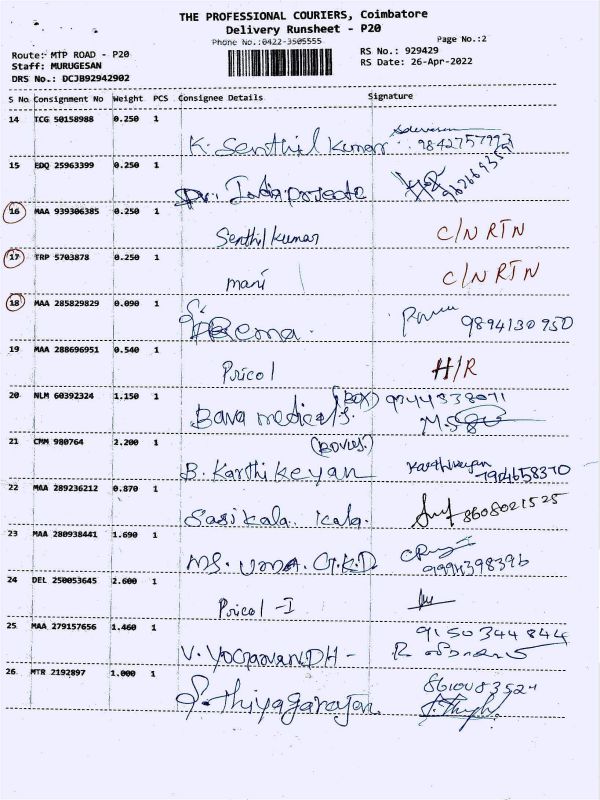 THE PROFESSIONAL COURIERS, Coimbatore
Delivery Runsheet - P20
Phone No.:0422-3505555
Page No.:2
Route: MTP ROAD - P20
RS No.: 929429
Staff: MURUGESAN
RS Date: 26-Apr-2022
DRS No.: DCJB92942902
S No Consignment No Weight PCS Consignee Details Signature
14 TCG 50158988 0.250 1
K. Senthil kumar
15 EDQ 25963399 0.250 1
16 MAA 939306385 0.250 1
Senthil kumar C/N RTN
17 TRP 5703878 0.250 1
mani C/N RTN
18 MAA 285829829 0.090 1
Rema. 9894130950
19 MAA 288696951 0.540 1
Pricol H/R
20 NLM 60392324 1.150 1
(BOX)
Bava medicals.
21 CMM 980764 2.200 1
B. Karthikeyan Karthikeyan
7904658370
22 MAA 289236212 0.870 1
Sasikala. kala. 8608021525
23 MAA 280938441 1.690 1
MS. UMA. G.K.D
24 DEL 250053645 2.600 1
Pricol - I
25 MAA 279157656 1.460 1
9150344844
26 MTR 2192897 1.000 1
8610083524
S. Thiyagarajan.